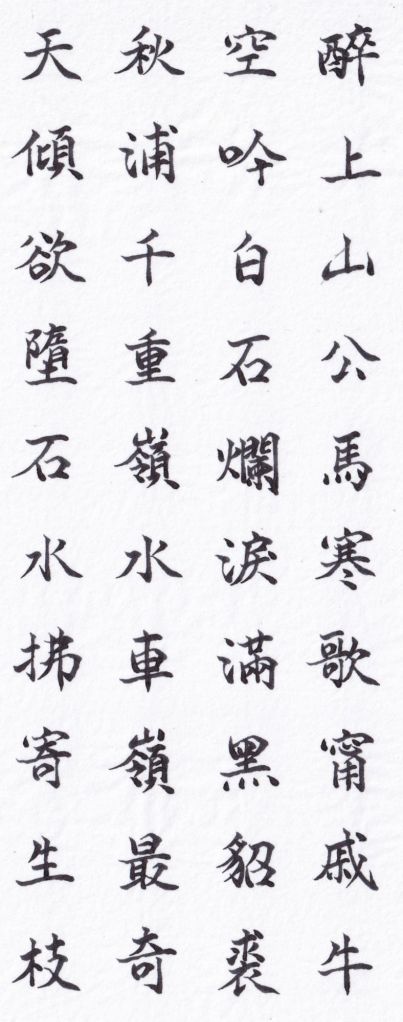 醉上山公馬寒歌甯戚牛
空吟白石爛淚滿黑貂裘
秋浦千重嶺水車嶺最奇
天傾欲墮石水拂寄生枝